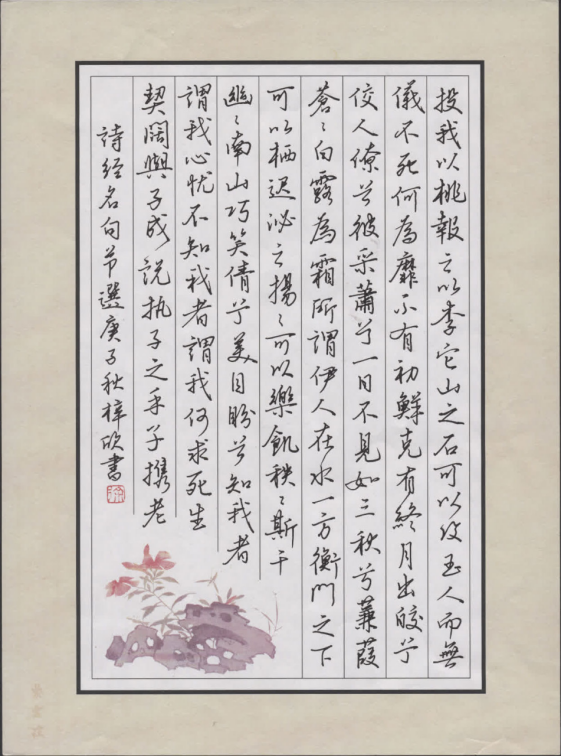 投我以桃報之以李它山之石可以攻玉人而無
儀不死何為靡不有初鮮克有終月出皎兮
佼人僚兮彼采蕭兮一日不見如三秋兮蒹葭
蒼〻白露為霜所謂伊人在水一方衡門之下
可以栖遲泌之揚〻可以樂飢秩〻斯干
幽〻南山巧笑倩兮美目盼兮知我者
謂我心忧不知我者謂我何求死生
契闊與子成說執子之手子携老
詩经名句节選庚子秋梓欣書